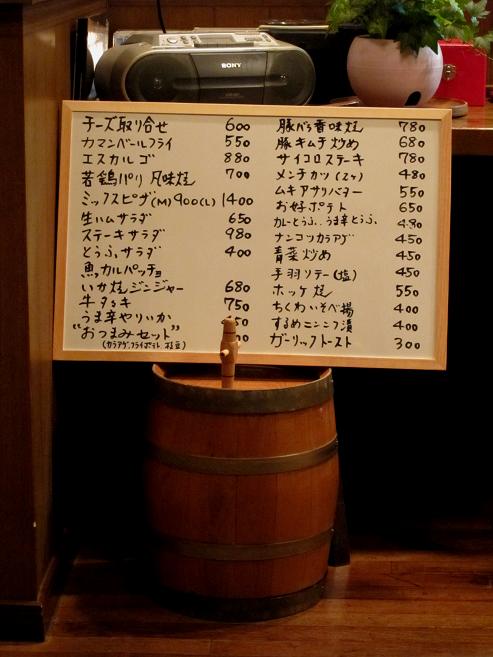 SONY
チーズ取り合せ 600
カマンベールフライ 550
エスカルゴ 880
若鶏パリパリ風味焼 700
ミックスピザ(M)900(L)1400
生ハムサラダ 650
ステーキサラダ 980
とうふサラダ 400
魚カルパッチョ
いか焼ジンジャー 680
牛タタキ 750
うま辛やりいか 50
"おつまみセット"
(カラアゲ、フライポテト、枝豆)
豚バラ香味焼 780
豚キムチ炒め 680
サイコロステーキ 780
メンチカツ(2ヶ) 480
ムキアサリバター 550
お好ポテト 650
カレーとうふ、うま辛とうふ 430
ナンコツカラアゲ 450
青菜炒め 450
手羽ソテー(塩) 450
ホッケ焼 550
ちくわいそべ揚 400
するめニンニク漬 400
ガーリックトースト 300